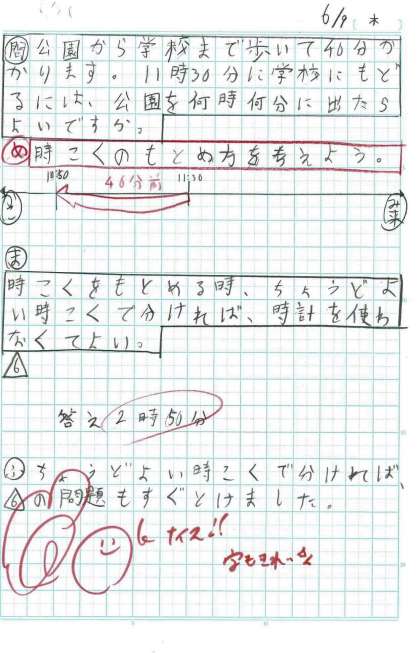 6/9 (木)
問 公園から学校まで歩いて40分か
かります。11時30分に学校にもど
るには、公園を何時何分に出たら
よいですか。
め 時こくのもとめ方を考えよう。
10:50 40分前 11:30
かこ み来
ま
時こくをもとめる時、ちょうどよ
い時こくで分ければ、時計を使わ
なくてよい。
6
答え 2時50分
ふ ちょうどよい時こくで分ければ、
6の問題もすぐとけました。
ナイス!!
字もきれー☆